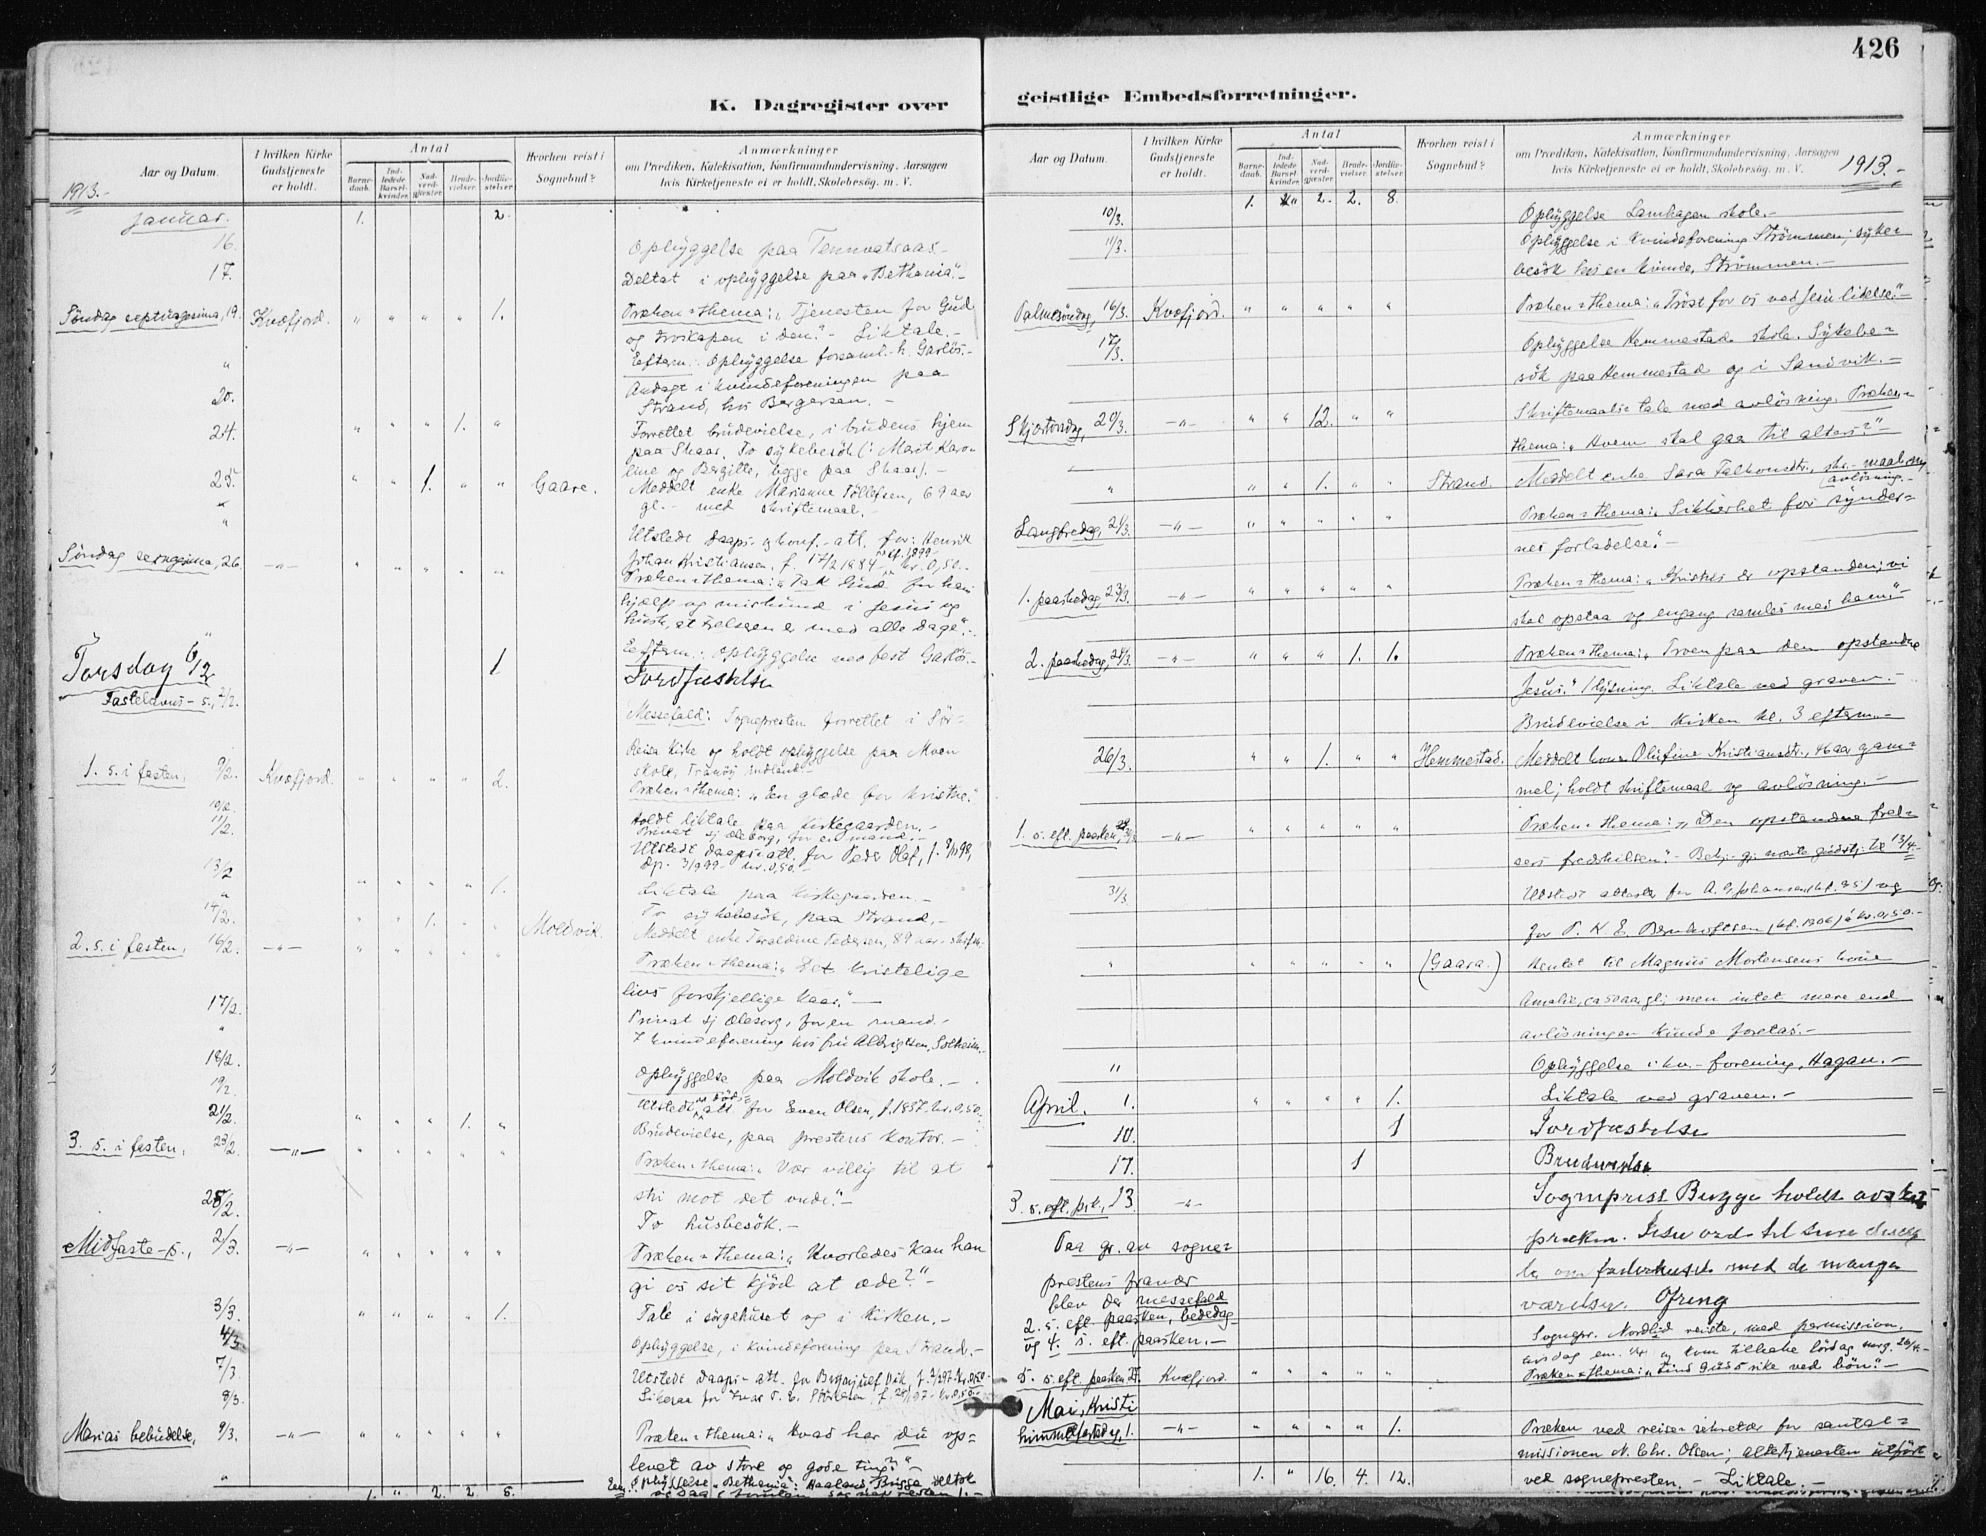 426
K. Dagregister over
geistlige Embedsforretninger.
Aar og Datum.
I hvilken Kirke Gudstjeneste er holdt.
Antal
Barne-daab.
Ind-ledede Barsel-kvinder.
Nad-verd-gjester.
Brude-vielser.
Jordfæ-stelser.
Hvorhen reist i Sognebud?
Anmærkninger
om Prædiken, Katekisation, Konfirmandundervisning, Aarsagen
hvis Kirketjeneste ei er holdt, Skolebesøg. m. V.
1913.-
Januar. 1. 2.
16. Opbyggelse paa Tennvatsaas.-
17. Deltat i opbyggelse paa „Bethania".-
Søndag septuagesima, 19. Kvæfjord. " " " " 1. Præken-thema: „Tjenesten for Gud
og troskapen i den."- Liktale.-
" Eftern.: Opbyggelse foraml. h. Garlös.-
20. Andagt i kvindeforeningen paa
Strand, hos Bergersen.-
24. " " " 1. " Forrettet brudevielse, i brudens hjem
paa Skaar. To sykebesök (: Marit Karo-
line og Bergitte, begge paa Skaar).-
25. " " 1. " " Gaare. Meddelt enke Marianne Tollefsen, 69 aar
gl.- med skriftemaal.-
" Utstedt daaps- og konf.-att. for: Henrik
Johan Kristiansen, f. 17/2 1884 kr. 0,50.-
Søndag sexagesima, 26. -"- " " " " " Præken-thema: „Tak Gud for hans
hjælp og miskund i Jesus og
husk, at Frelseren er med alle dage".-
Eftern.: Opbyggelse ved fest Garlös.-
Torsdag 6/2 1 Jordfæstelse
Fastelavns-s., 2/2. Messefald: Sognepresten forrettet i Sör-
Reisa kirke og holdt opbyggelse paa Moen
skole, Tranöy indland.-
1. s. i fasten, 9/2. Kvæfjord. " " " " 2. Præken-thema: „En glæde for kristne."
Holdt liktale paa kirkegaarden.-
10/2. Privat sjælesorg, for en mand.-
11/2. Utstedt daaps-att. for Peder Olaf,
13/2 " " " " 1. Liktale paa kirkegaarden.-
" To sykebesök, paa Strand.-
14/2. " " 1. " " Moldvik. Meddelt enke Pedersen, 89 aar-
2. s. i fasten, 16/2. -"- " " " " " Præken-thema: „Det kristelige
livs forskjellige kaar."-
17/2. Privat sjælesorg, for en mand.-
" I kvindeforening hos fru Albrigtsen, Solheim.-
18/2. Opbyggelse paa Moldvik skole.-
19/2. Utstedt att. for Even Olsen, f. 1857. kr. 0,50.
21/2. " " " 1. " Brudevielse, paa prestens kontor.-
3. s. i fasten, 23/2. -"- " " " " " Præken-thema: „Vær villig til at
stri mot det onde".-
25/2. To husbesök.-
Midfaste-s., 2/3. -"- " " " " " Præken-thema: „Hvorledes kan han
gi os sit kjöd at æde?"-
3/3. " " " " 1. Tale i sörgehuset og i kirken.-
4/3. Opbyggelse, i kvindeforening paa Strand.-
7/3. Utstedt daaps-att. for
8/3. Likesaa for
Marias bebudelse, 9/3. -"- " " " " " Præken-thema: „Hvad har du op-
levet av store og gode ting?"-
" Opbyggelse „Bethania":
1. " 2. 2. 5.
Aar og Datum.
I hvilken Kirke Gudstjeneste er holdt.
Antal
Barne-daab.
Ind-ledede Barsel-kvinder.
Nad-verd-gjester.
Brude-vielser.
Jordfæ-stelser.
Hvorhen reist i Sognebud?
Anmærkninger
om Prædiken, Katekisation, Konfirmandundervisning, Aarsagen
hvis Kirketjeneste ei er holdt, Skolebesøg. m. V.
1913.-
1. " 2. 2. 8.
10/3. Opbyggelse skole.-
11/3. Opbyggelse i kvindeforening Strömmen; syke-
besök hos en kvinde, Strömmen.-
Palmesöndag, 16/3. Kvæfjord. " " " " " Præken-thema: „Tröst for os ved Jesu lidelse."-
17/3. Opbyggelse Hemmestad skole. Sykebe-
sök paa Hemmestad og i Sandvik.-
Skjærtorsdag, 20/3. -"- " " 12. " " Skriftemaals-tale med avlösning. Præken-
thema: „Hvem skal gaa til alters?"-
" " " 1. " " Strand. Meddelt enke Sara skr.-maal og
(avlösning.-
Langfredag, 21/3. -"- " " " " " Præken-thema: „Sikkerhet for synder-
nes forladelse".-
1. paaskedag, 23/3. -"- " " " " " Præken-thema: „Kristus er opstanden; vi
skal opstaa og engang samles med ham."-
2. paaskedag, 24/3. -"- " " " 1. 1. Præken-thema: „Troen paa den opstandne
Jesus." Lysning. Liktale ved graven.-
Brudevielse i kirken kl. 3 eftern.-
26/3. " " 1. " " Hemmestad. Meddelt kone Olufine Kristiansdtr., 46 aar gam-
mel; holdt skriftemaal og avlösning.-
1. s. eft. paasken, 30/3 -"- " " " " " Præken-thema: „Den opstandne frel-
sers fredshilsen."- Bekj. gj. næste gudstj. til 13/4.-
31/3. Utstedt attester for A. G. Johansen og
for P. K. E. Bernhoftsen, (kf. 1906) á kr. 0,50.-
" " " " " " (Gaara.) Hentet til Magnus Mortensens kone
Amalie, ca 50 aar gl; men intet mere end
avlösningen kunde foretas.-
" Opbyggelse i kv.-forening, Hagan.-
April. 1. " " " " 1. Liktale ved graven.-
10. 1 Jordfæstelse
17. 1 Brudevielse
3. s. eft. p.k., 13. -"- Sogneprest Bugge holdt avskeds
præken. Jesu ord til sine disip
le om faderhuset med de mange
værelser. Ofring
Paa gr. av sogne-
prestens fravær
blev der messefald
2. s. eft. paasken, bededag
og 4. s. eft. paasken.-
Sognepr. Nordlid reiste, med permission,
onsdag em. og kom tilbake lördag morg. 26/4.-
5. s. eft. paasken 27. Kvæfjord. " " " " " Præken-thema: „Find Guds rike ved bön."-
Mai, Kristi
himmelfartsdag, 1. -"- " " " " 1. Præken ved reisesekretær for santal-
missionen N. Chr. Olsen; altertjenesten utfört
ved sognepresten.- Liktale.-
1. " 16. 4. 12.